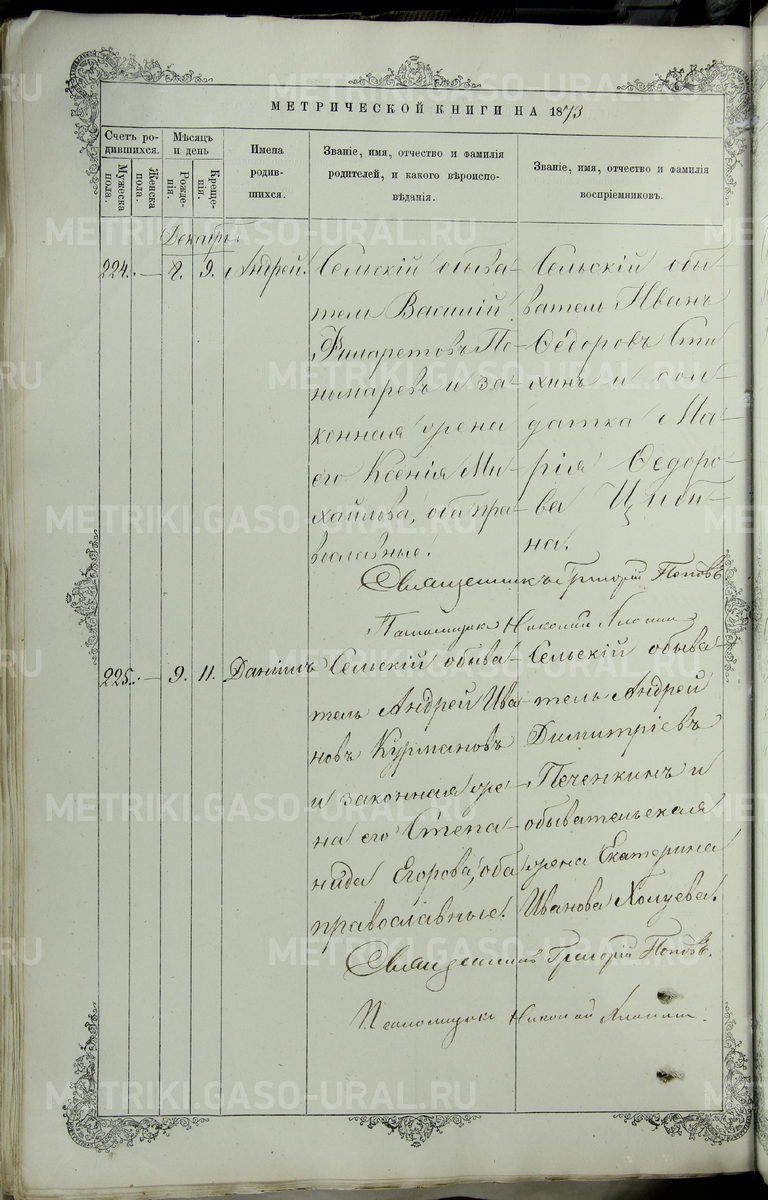 МЕТРИЧЕСКОЙ КНИГИ НА 1873
Счетъ ро-
дившихся.
Мужеска
пола.
Женска
пола.
Мѣсяцъ
и день
Рожде-
нія.
Креще-
нія.
Имена
родив-
шихся.
Званіе, имя, отчество и фамилія
родителей, и какого вѣроиспо-
вѣданія.
Званіе, имя, отчество и фамилія
воспріемниковъ.
Декабрь.
224. — 8. 9. Андрей.
Сельскій обыва-
тель Василій
Филаретовъ По-
номаревъ и за-
конная жена
его Ксенія Ми-
хайлова, оба пра-
вославные.
Сельскій обы-
ватель Иванъ
Ѳедоровъ
и сол-
датка Ма-
рія Ѳедоро-
ва
на.
Священникъ Григорій Поповъ
Псаломщикъ Николай
225. — 9. 11. Даніилъ
Сельскій обыва-
тель Андрей Ива-
новъ Курмановъ
и законная же-
на его Степа-
нида Егорова, оба
православные.
Сельскій обыва-
тель Андрей
Димитріевъ
Печенкинъ и
обывательская
жена Екатерина
Иванова Холуева.
Священникъ Григорій Поповъ.
Псаломщикъ Николай
METRIKI.GASO-URAL.RU